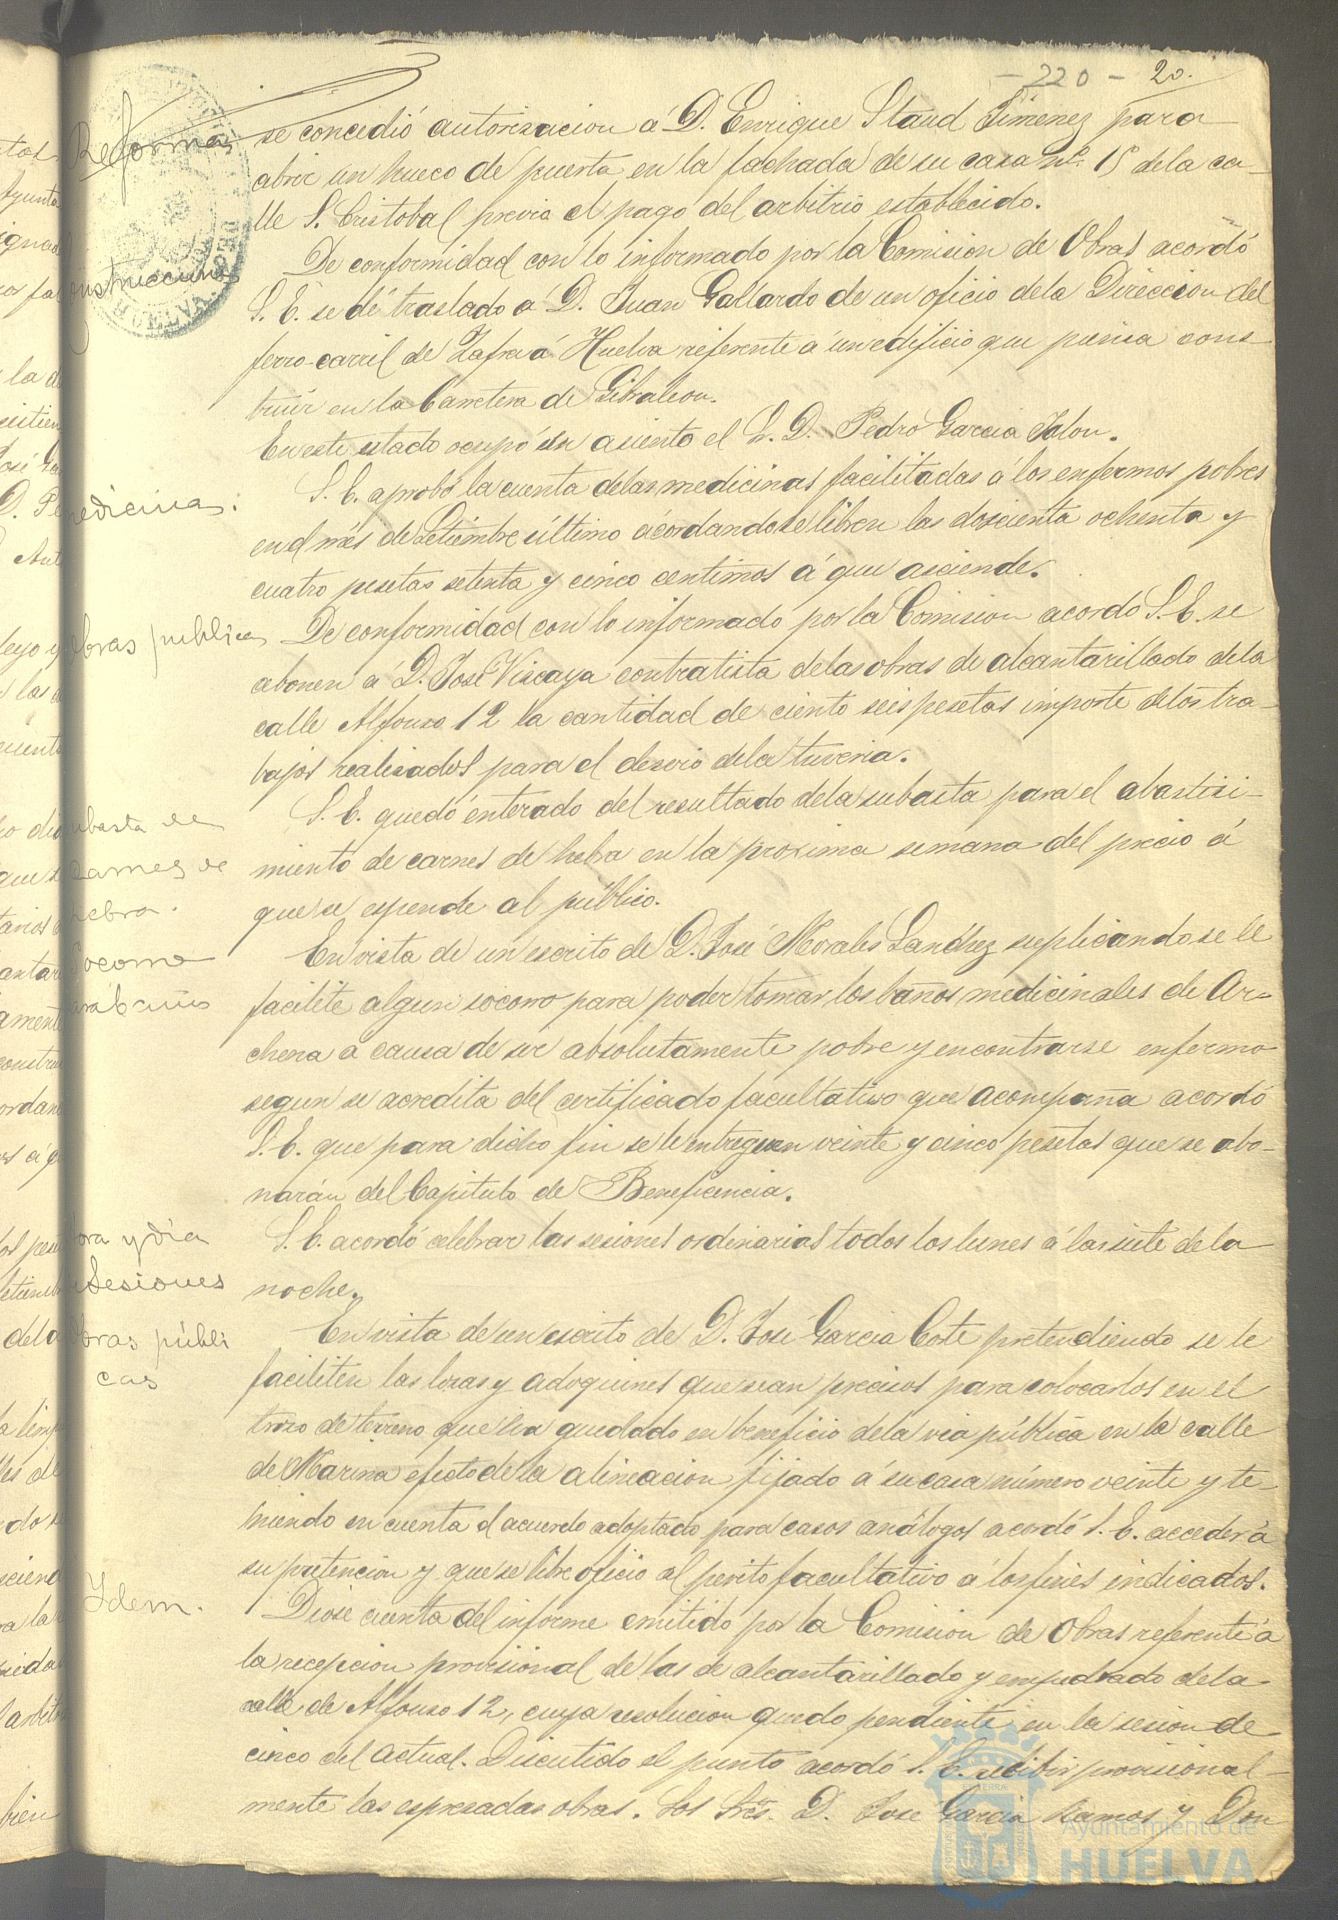 - 220 - 20.
Reformas
se concedió autorizacion á D. Enrique Staud Jimenez para
abrir un hueco de puerta en la fachada de su casa nº 15 de la ca-
lle S. Cristobal previo el pago del arbitrio establecido.
De conformidad con lo informado por la Comision de Obras acordó
onstrucciones
S. E. se dé traslado a D. Juan Gallardo de un oficio dela Direccion del
ferro-carril de Zafra á Huelva referente a un edificio que piensa cons-
truir en la Carretera de Gibraleon.
En este estado ocupó su asiento el S. D. Pedro Garcia Jalon.
edicinas.
S. E. aprobó la cuenta delas medicinas facilitadas á los enfermos pobres
en el més de Setiembre último acordando se libren las doscienta ochenta y
cuatro pesetas setenta y cinco centimos á que asciende.
Obras publicas
De conformidad con lo informado por la Comision acordo S. E. se
abonen á D. José Viscaya contratista delas obras de alcantarillado dela
calle Alfonso 12 la cantidad de ciento seis pesetas importe delos tra-
bajos realizados para el desvio dela tuveria.
ubasta de
carnes de
hebra.
S. E. quedó enterado del resultado dela subasta para el abasteci-
miento de carnes de hebra en la proxima semana del precio á
que se espende al público.
Socorro
para baños
En vista de un escrito de D. José Morales Sanchez suplicando se le
facilite algun socorro para poder tomar los baños medicinales de Ar-
chena a causa de ser absolutamente pobre y encontrarse enfermo
segun se acredita del certificado facultativo que acompaña acordó
S. E. que para dicho fin se le entreguen veinte y cinco pesetas que se abo-
narán del Capitulo de Beneficencia.
ora y dia
Sesiones
S. E. acordó celebrar las sesiones ordinarias todos los lunes á las siete de la
noche.
bras públi
cas
En vista de un escrito de D. José Garcia Coste pretendiendo se le
faciliten las losas y adoquines que sean precisos para colocarlos en el
trozo de terreno que ha quedado en beneficio dela via pública en la calle
de Marina efecto de la alineacion fijado á su casa número veinte y te-
niendo en cuenta el acuerdo adoptado para casos análogos acordó S. E. acceder á
su pretencion y que se libre oficio al perito facultativo á los fines indicados.
Ydem.
Diose cuenta del informe emitido por la Comision de Obras referente á
la recepcion provisional de las de alcantarillado y empedrado dela
calle de Alfonso 12, cuya resolucion quedo pendiente en la sesion de
cinco del actual. Discutido el punto acordó S. E. recibir provisional-
mente las espresadas obras. Los Sres. D. Jose Garcia Ramos y Don
Ayuntamiento de
HUELVA